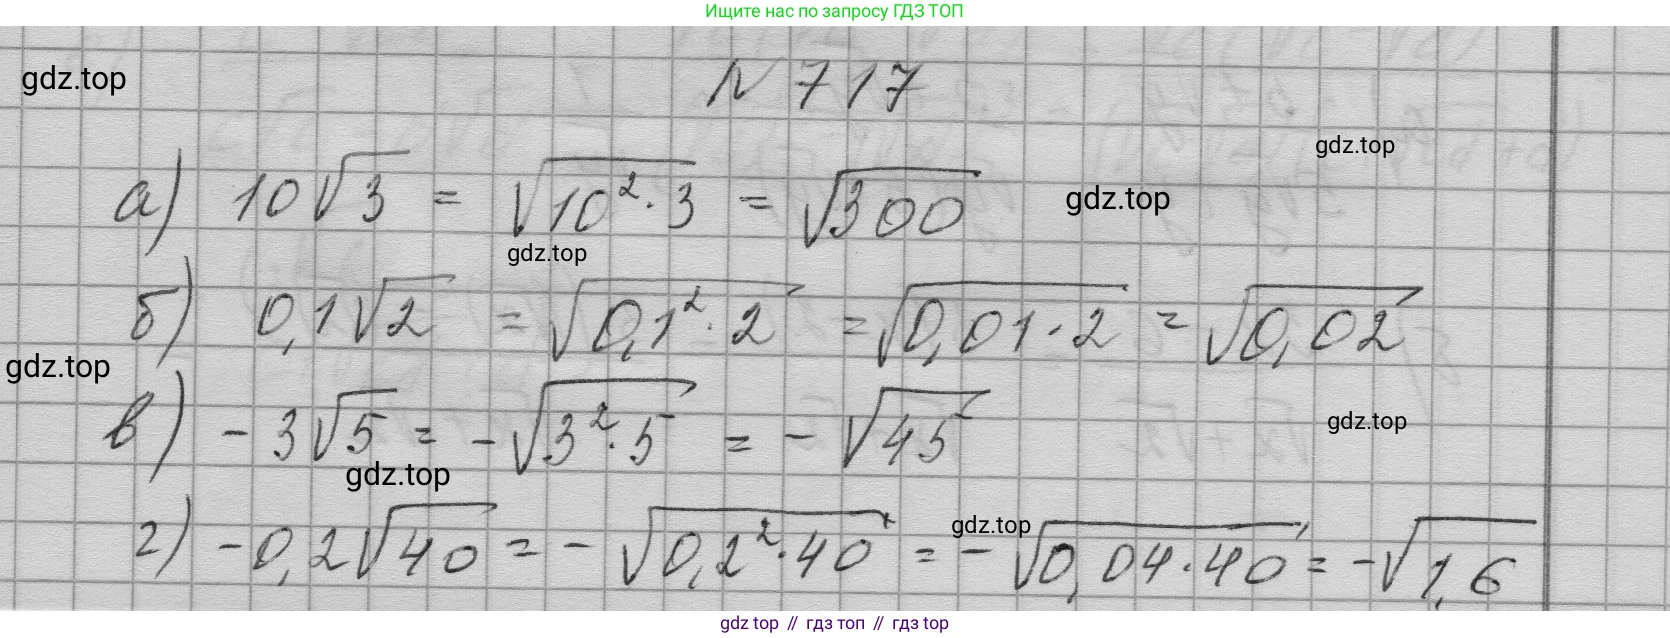 Ищите нас по запросу ГДЗ ТОП
gdz.top
N 717
gdz.top
а) 10√3 = √10²·3 = √300
gdz.top
gdz.top
б) 0,1√2 = √0,1²·2 = √0,01·2 = √0,02
gdz.top
в) -3√5 = -√3²·5 = -√45
gdz.top
gdz.top
г) -0,2√40 = -√0,2²·40 = -√0,04·40 = -√1,6
gdz.top
gdz top // гдз топ // gdz top